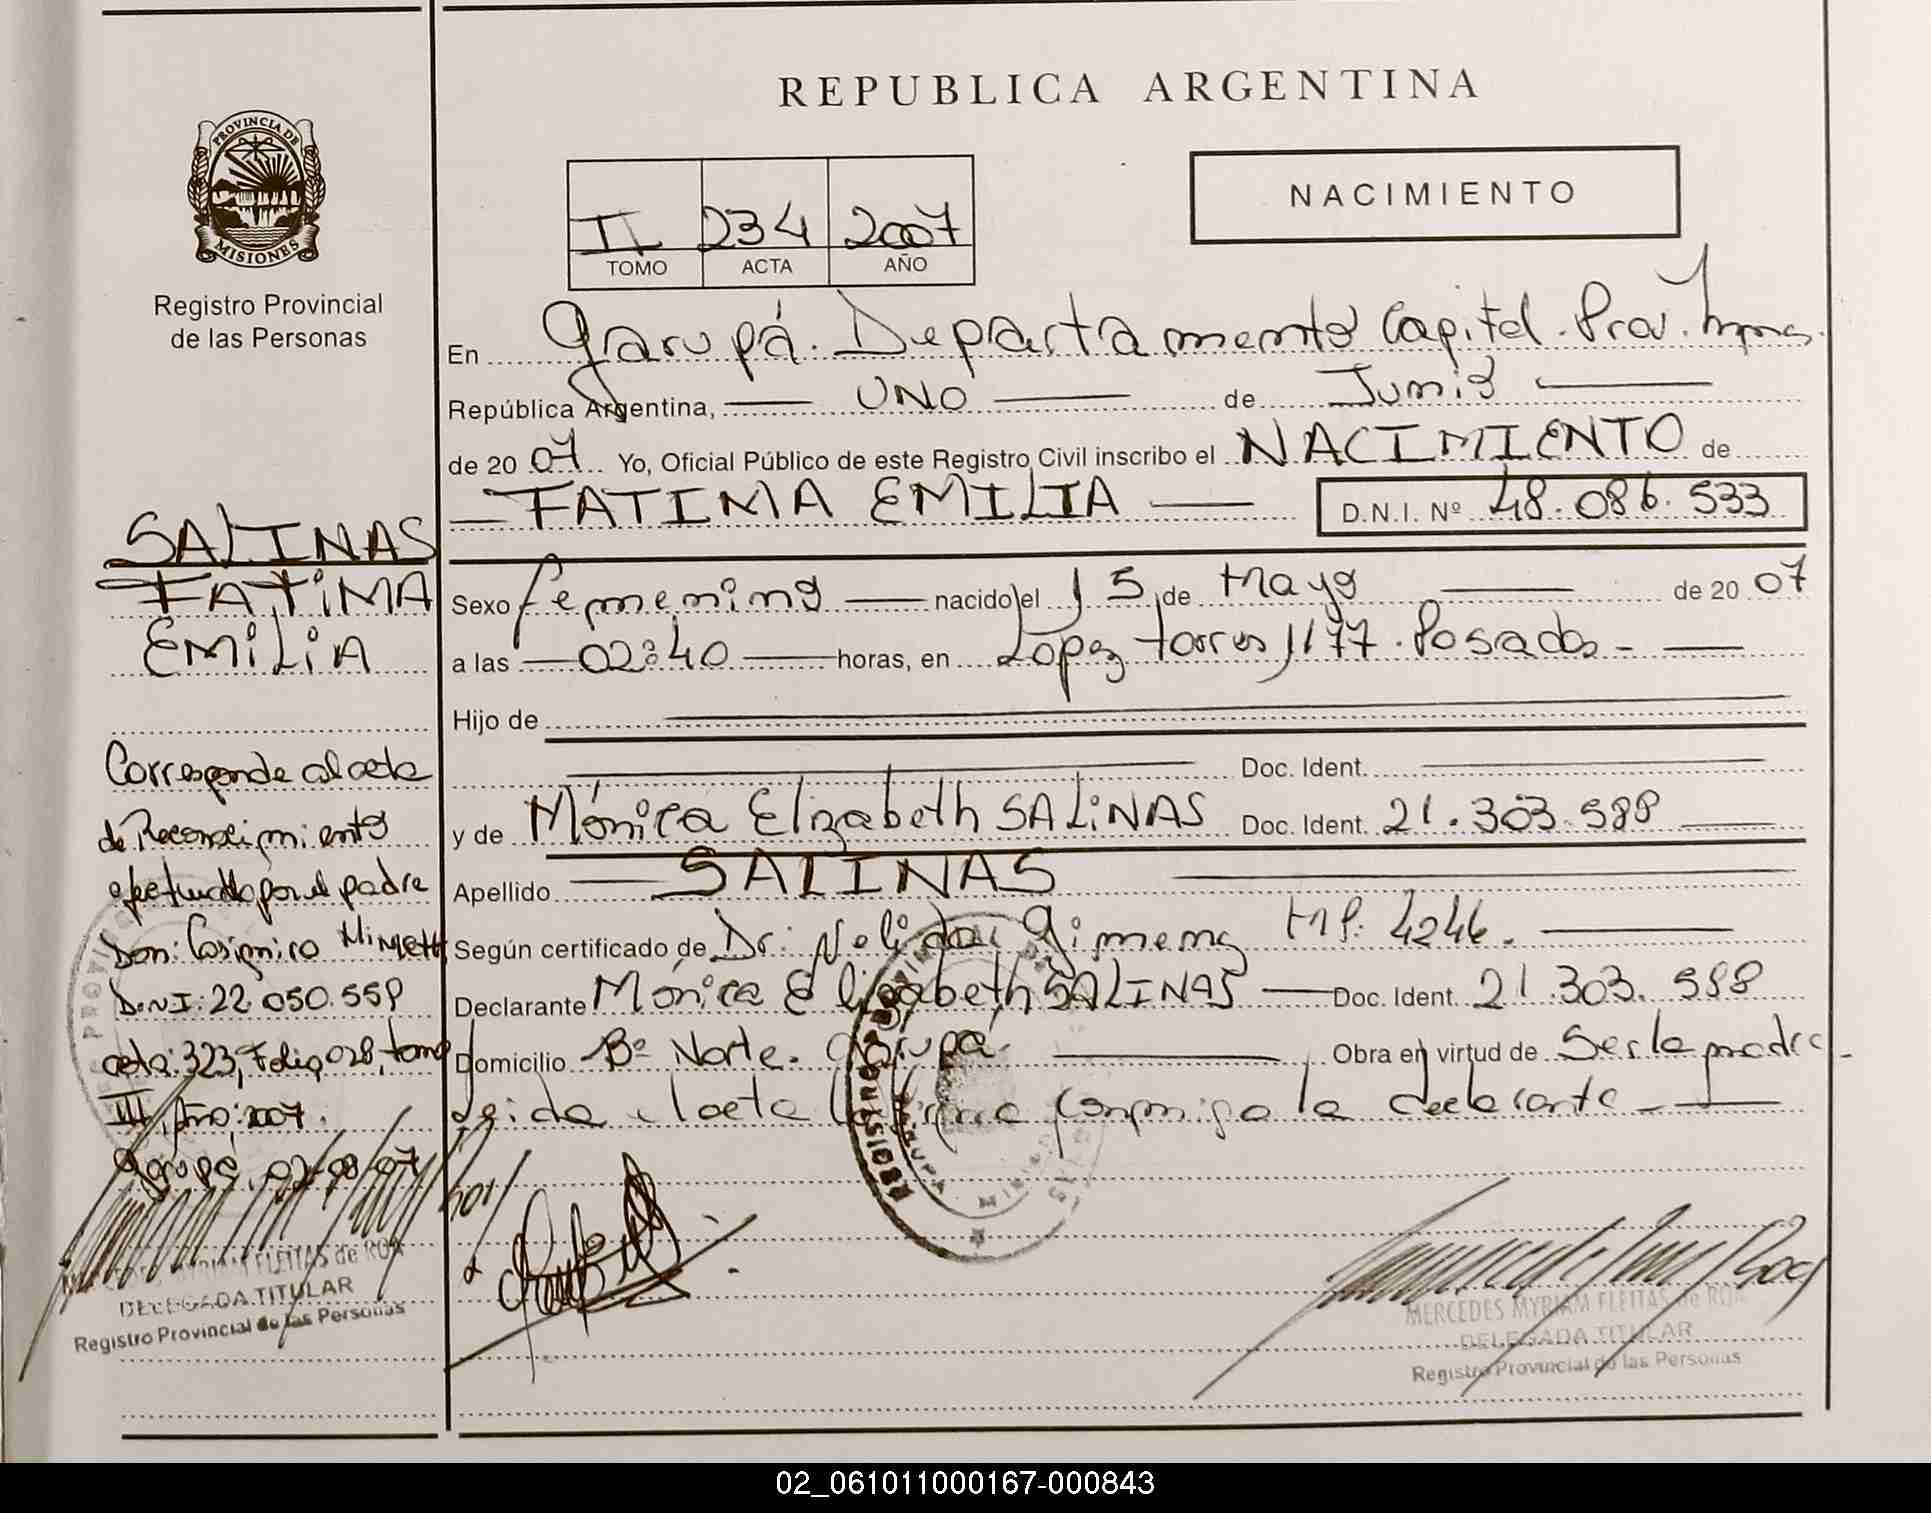 REPUBLICA ARGENTINA
PROVINCIA DE
MISIONES
Registro Provincial
de las Personas
NACIMIENTO
II 234 2007
TOMO ACTA AÑO
En Garupá. Departamento Capital. Prov. Mnes.
República Argentina, UNO de Junio
de 20 07 Yo, Oficial Público de este Registro Civil inscribo el NACIMIENTO de
FATIMA EMILIA D.N.I. Nº 48.086.533
Sexo femenino nacido el 15 de Mayo de 20 07
a las 02:40 horas, en Lopez torres 1177. Posadas
Hijo de
Doc. Ident.
y de Mónica Elizabeth SALINAS Doc. Ident. 21.303.588
Apellido SALINAS
Según certificado de Dr: Nelida Gimenez MP. 4246.
Declarante Mónica Elizabeth SALINAS Doc. Ident. 21.303.588
Domicilio Bº Norte. Garupá. Obra en virtud de Ser la madre.
Leida el acta la firma conmigo la declarante
SALINAS
FATIMA
EMILIA
Corresponde al acta
de Reconocimiento
efectuado por el padre
Don: Casimiro
D.N.I: 22.050.559
acta: 323, Folio 028, tomo
III, Año: 2007.
Garupá, 02-08-07
MYRIAM FLEITAS de ROA
DELEGADA TITULAR
Registro Provincial de las Personas
MERCEDES MYRIAM FLEITAS de ROA
DELEGADA TITULAR
Registro Provincial de las Personas
02_061011000167-000843